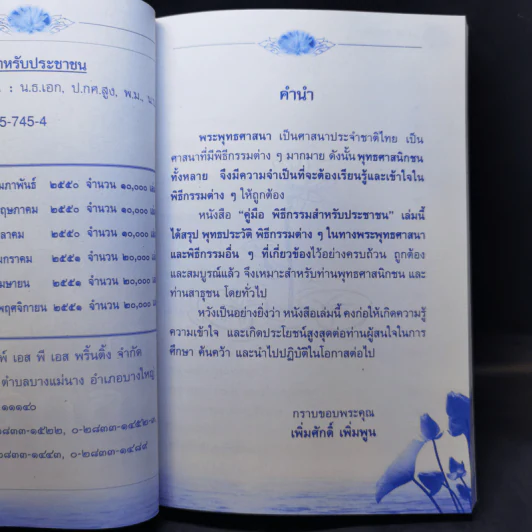 หรับประชาชน
: น.ธ.เอก, ป.กศ.สูง, พ.ม.,
5-745-4
๒๕๕๐ จำนวน ๑๐,๐๐๐
๒๕๕๐ จำนวน ๑๐,๐๐๐
๒๕๕๐ จำนวน ๑๐,๐๐๐
๒๕๕๑ จำนวน ๒๐,๐๐๐
๒๕๕๑ จำนวน ๒๐,๐๐๐
พฤศจิกายน ๒๕๕๑ จำนวน ๒๐,๐๐๐
เอส พี เอส พริ้นติ้ง จำกัด
ตำบลบางแม่นาง อำเภอบางใหญ่
๑๑๑๔๐
๘๓๓-๑๕๒๒, ๐-๒๘๓๓-๑๔๕๒-๓
๘๓๓-๑๔๔๓, ๐-๒๘๓๓-๑๔๘๙
คำนำ
พระพุทธศาสนา เป็นศาสนาประจำชาติไทย เป็น
ศาสนาที่มีพิธีกรรมต่าง ๆ มากมาย ดังนั้น พุทธศาสนิกชน
ทั้งหลาย จึงมีความจำเป็นที่จะต้องเรียนรู้และเข้าใจใน
พิธีกรรมต่าง ๆ ให้ถูกต้อง
หนังสือ "คู่มือ พิธีกรรมสำหรับประชาชน" เล่มนี้
ได้สรุป พุทธประวัติ พิธีกรรมต่าง ๆ ในทางพระพุทธศาสนา
และพิธีกรรมอื่น ๆ ที่เกี่ยวข้องไว้อย่างครบถ้วน ถูกต้อง
และสมบูรณ์แล้ว จึงเหมาะสำหรับท่านพุทธศาสนิกชน และ
ท่านสาธุชน โดยทั่วไป
หวังเป็นอย่างยิ่งว่า หนังสือเล่มนี้ คงก่อให้เกิดความรู้
ความเข้าใจ และเกิดประโยชน์สูงสุดต่อท่านผู้สนใจในการ
ศึกษา ค้นคว้า และนำไปปฏิบัติในโอกาสต่อไป
กราบขอบพระคุณ
เพิ่มศักดิ์ เพิ่มพูน